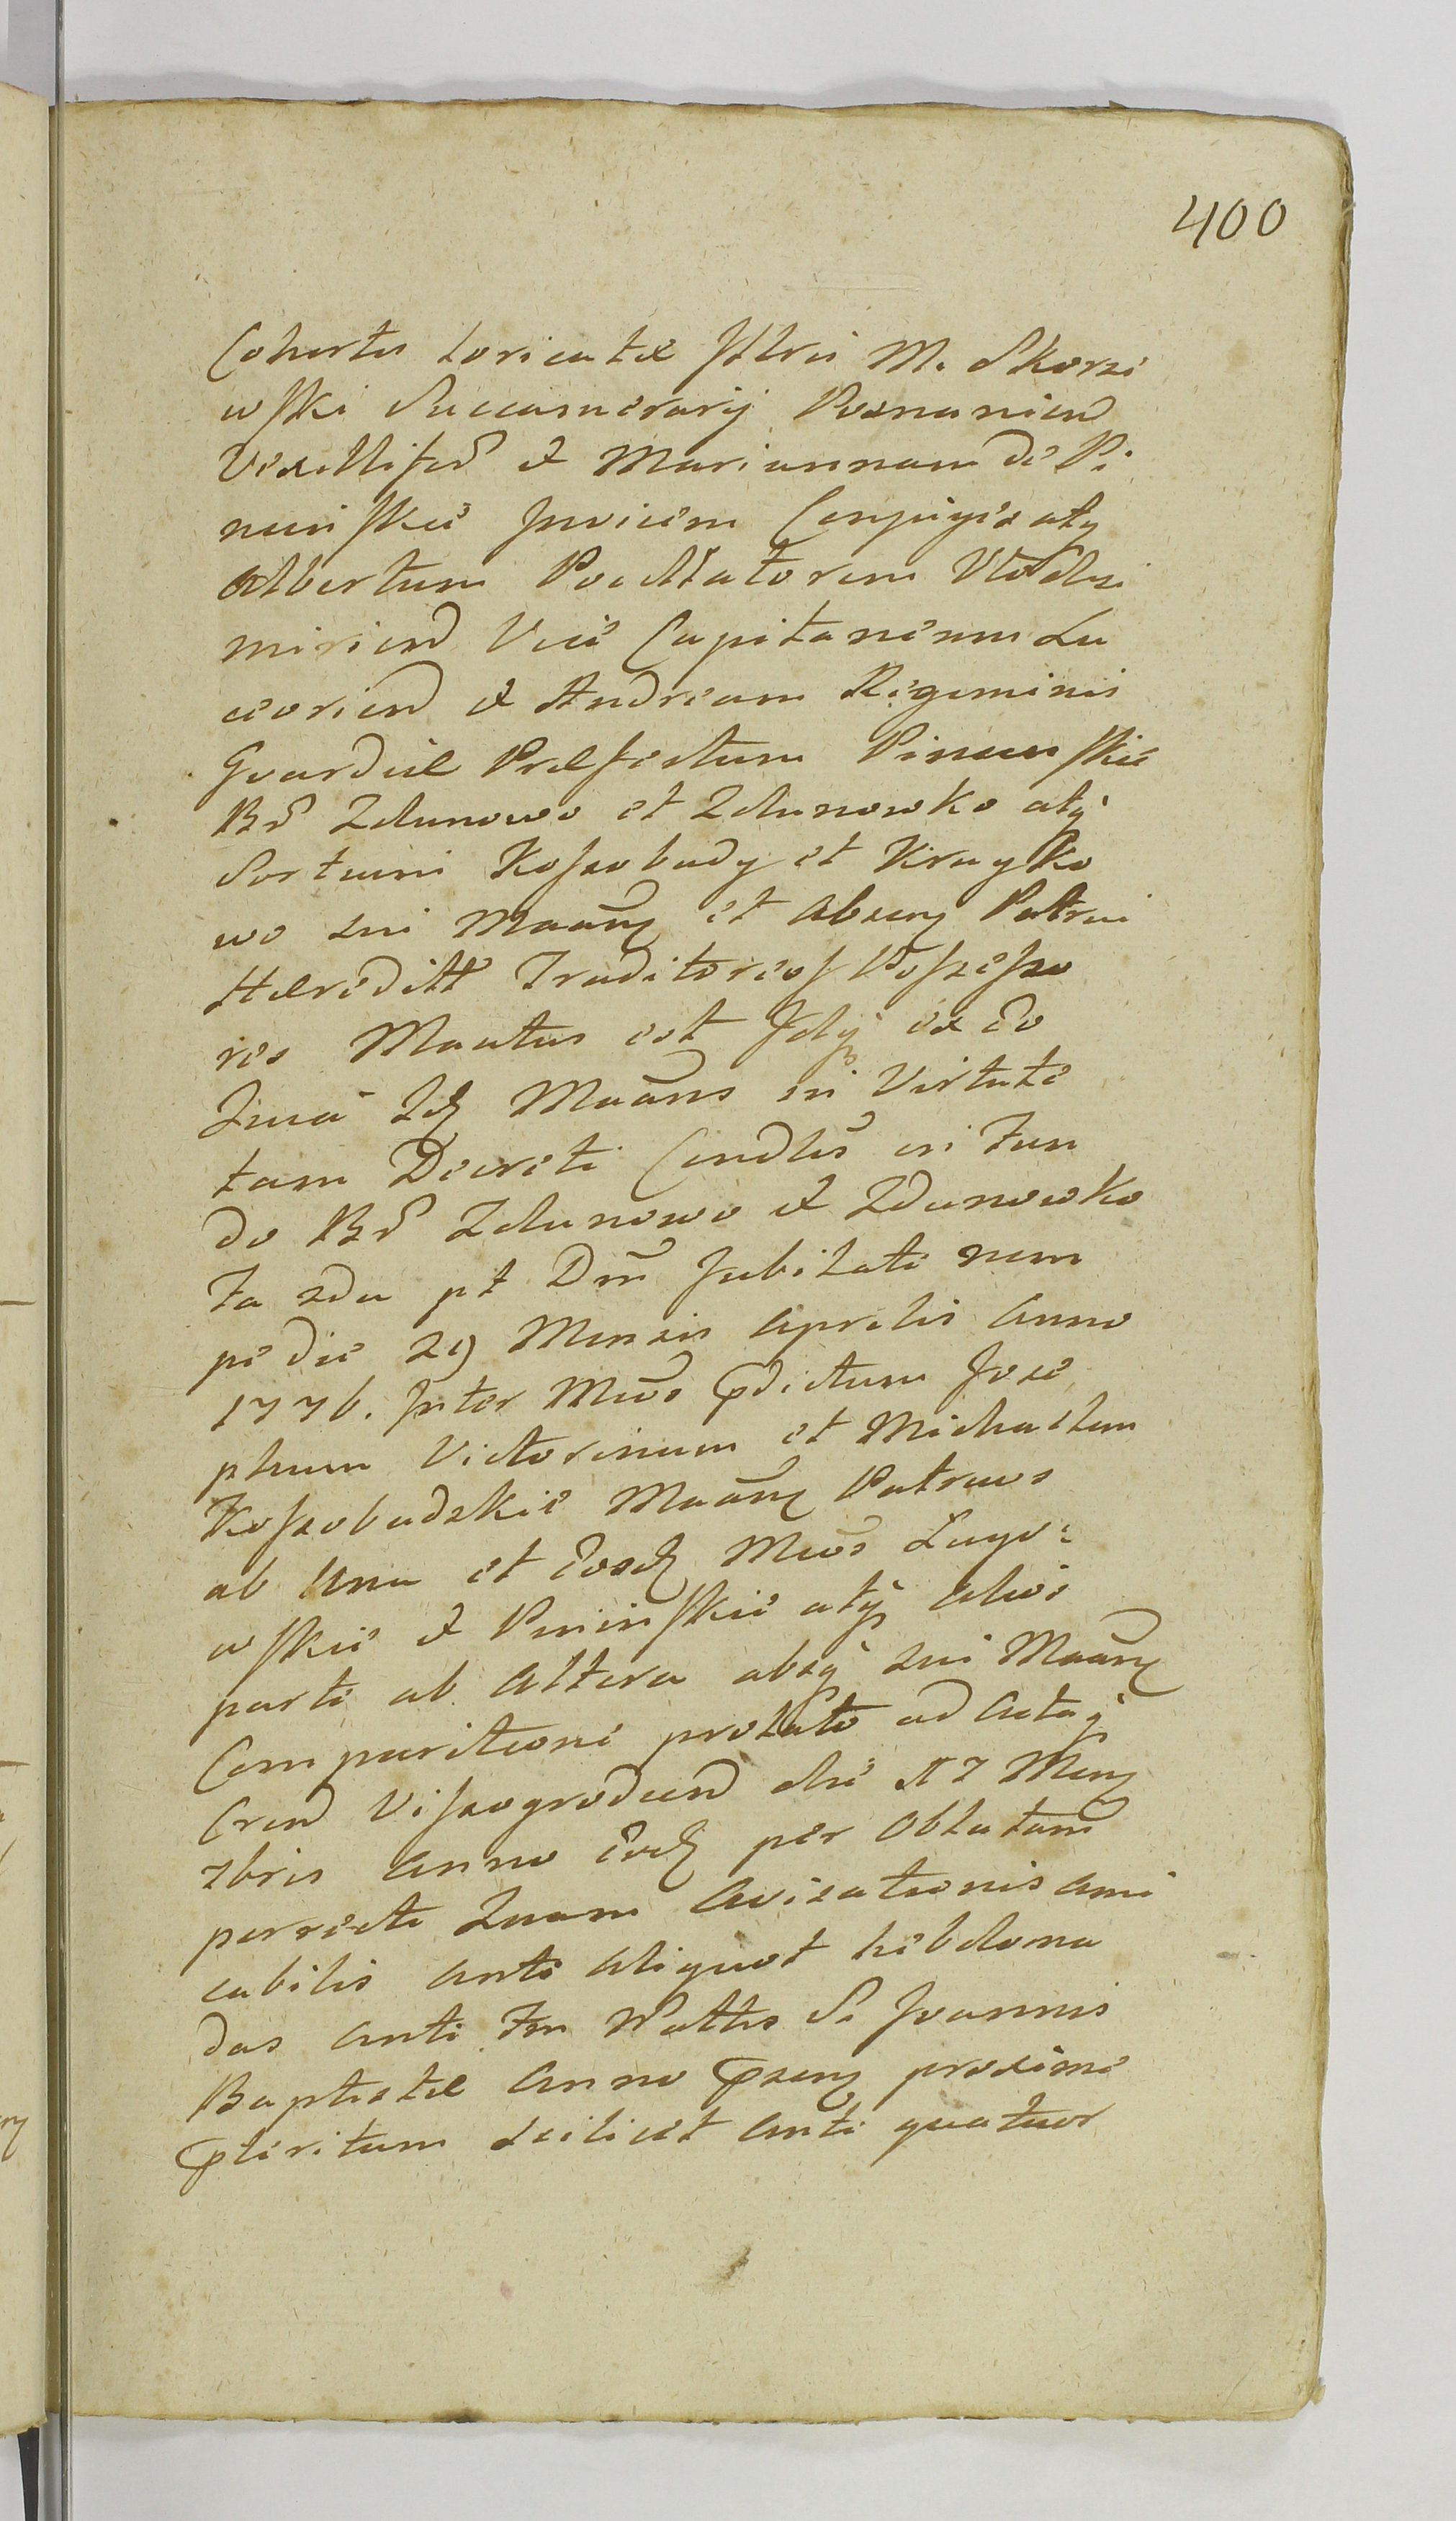 400
Cohortis loricatæ Illris M. Skorze
wſki Succamerarij Posnanien
Vexilliferd & Mariannam de Pi
ninſkie Invicem Conjuges atq
Albertum Pocillatorem Wlodzi
mirien Vice Capitaneum Lu
ceorien & Andream Regiminis
Gvardiæ Præfectum Pininſkie
Bd Zdunowo et Zdunowko atq
Sortium Koſsobudy et Krayko
wo sui Maam et absen Patrui
Hæreditt Traditoreos Poſseſso
res Maatus est Idq ex eo
Quia Idem Maans in Virtute
tam Decreti Condlis in Fun
do Bd Zdunowo & Zdunowko
Fa 2da pt Dm Jubilate nem
pe die 29 Mensis Aprilis Anno
1776. Inter Mcos Pdictum Jose
phum Victorinum et Michaelem
Koſsobudzkie Maam Patruos
ab Una et Eosd Mcos Zago
wſkie & Pininſkie atq alios
parte ab Altera absq sui Maam
Comparitione prolato ad Actaq
Cren Viſsogroden die 17 Men
7bris Anno Eod per Oblatam
porrecti Quam Avisationis ami
cabilis ante aliquot hebdoma
das ante Fm Nattis S. Joannis
Baptistæ Anno Psen proxime
Pteritum scilicet ante quatuor